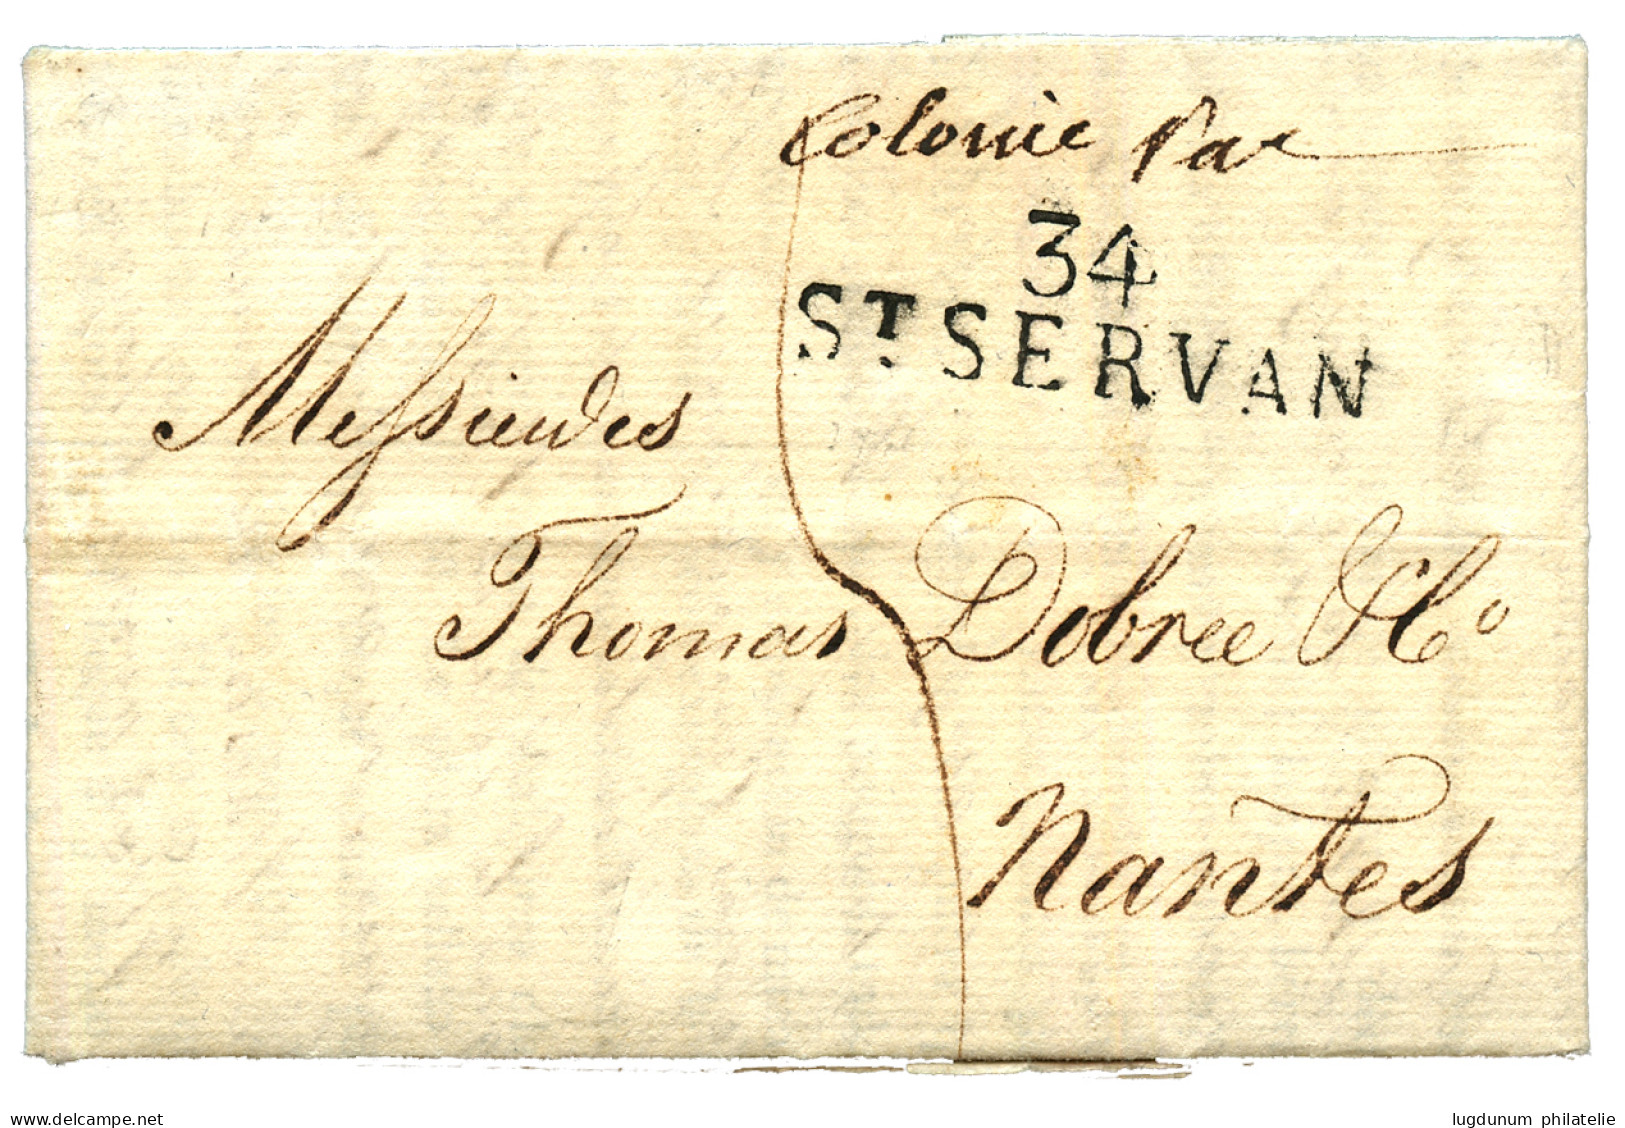 Colonie Par
34
ST SERVAN
Messieurs
Thomas Dobree & Co
Nantes
delcampe.net
lugdunum philatelie